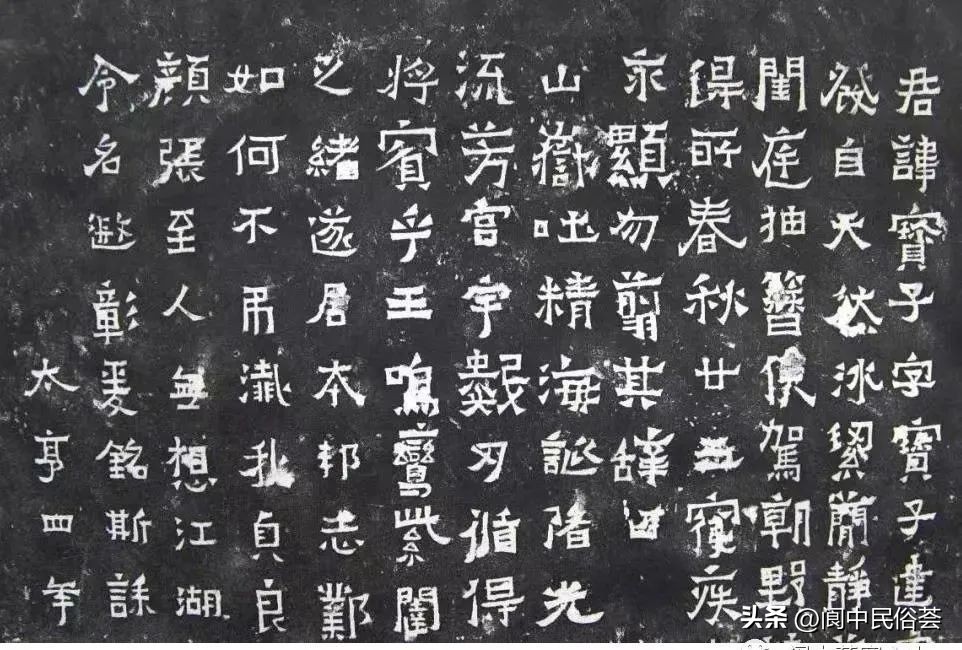 君諱寶子字寶子建
發自天然冰絜簡靜
閨庭抽簪俟駕朝野
得所春秋廿五寑疾
永顯勿翦其辭曰
山嶽吐精海誕陼光
流芳宮宇數刃循得
將賓乎王鳴鸞紫闥
之緒遂居本邦志鄴
如何不弔殲我貞良
顏張至人無想江湖
令名遐彰爰銘斯誄
太亨四年
头条 @阆中民俗荟